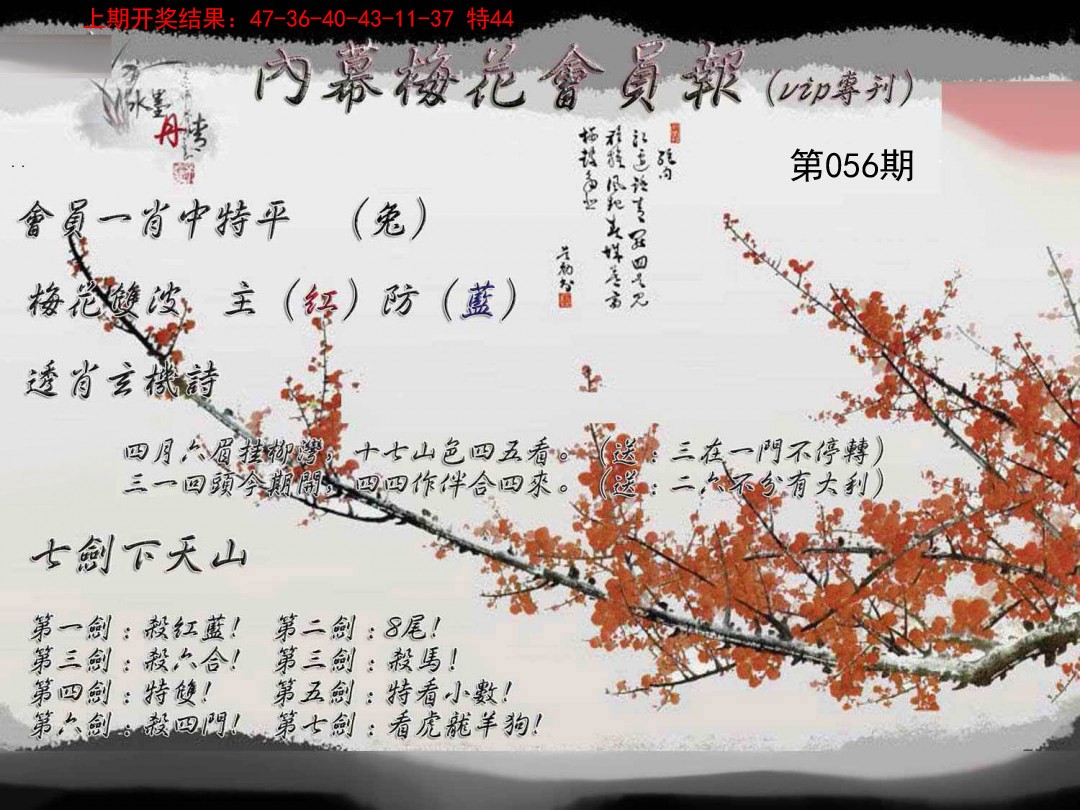 上期开奖结果：47-36-40-43-11-37 特44
內幕梅花會員報（vip專刊）
水墨
丹青
第056期
會員一肖中特平　（兔）
梅花雙波　主（紅）防（藍）
透肖玄機詩
四月六眉挂柳灣，十七山色四五看。（送：三在一門不停轉）
三一回頭今期開，四四作伴合四來。（送：二六不分有大利）
七劍下天山
第一劍：殺紅藍！　第二劍：8尾！
第三劍：殺六合！　第三劍：殺馬！
第四劍：特雙！　第五劍：特看小數！
第六劍：殺四門！　第七劍：看虎龍羊狗！